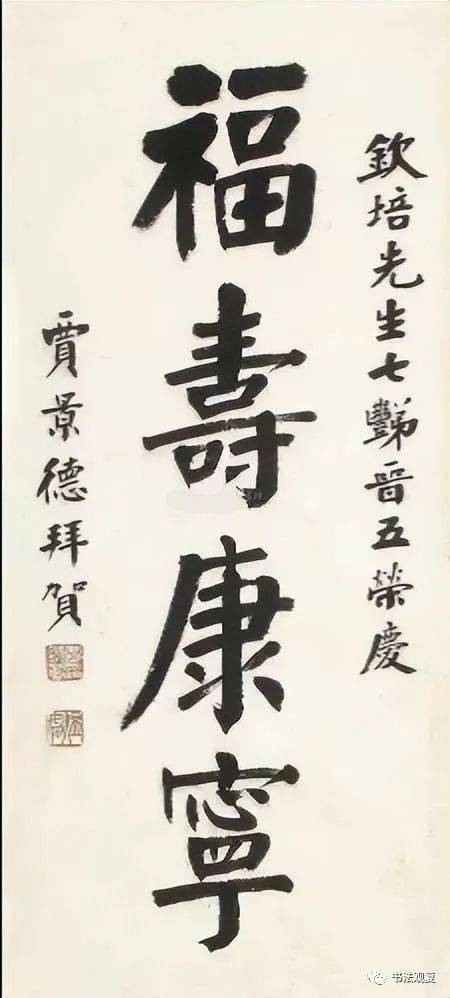 欽培先生七豑晉五榮慶
福壽康寧
賈景德拜賀
书法观复